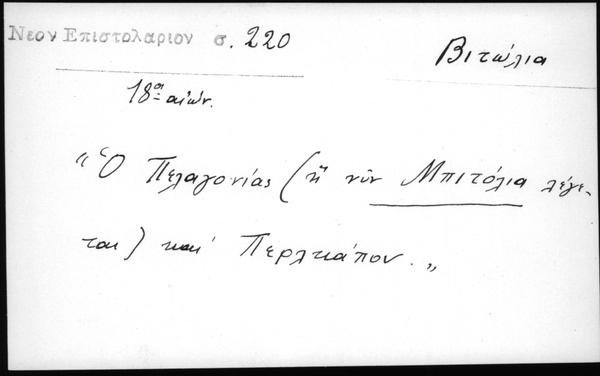 Νεον Επιστολαριον σ. 220
Βιτώλια
18ᵒˢ αἰών.
“Ὁ Πελαγονίας (ἣ νῦν Μπιτόλια λέγε-
ται) καὶ Περλεάπου.„